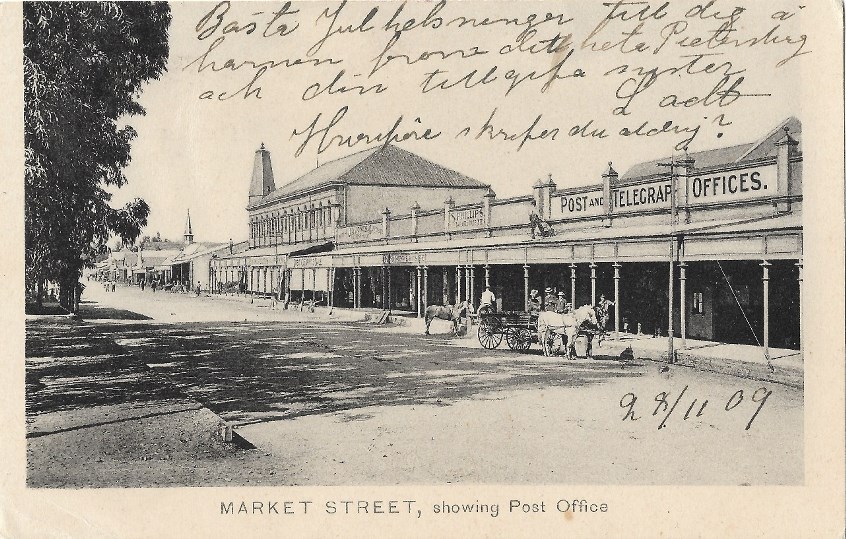 Bästa Julhelsninger till dig å
harnen från det heta Pietersburg
ach din tillgifna syster
Hvarföre skrifver du aldrig?
PHILLIPS
POST AND TELEGRAPH OFFICES.
28/11 09
MARKET STREET, showing Post Office